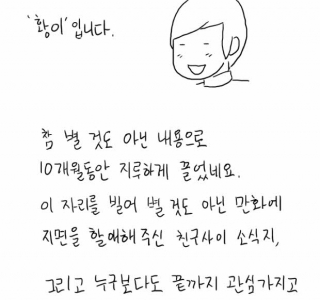 '황이'입니다.
참 별 것도 아닌 내용으로
10개월동안 지루하게 끌었네요.
이 자리를 빌어 별 것도 아닌 만화에
지면을 할애해주신 친구사이 소식지,
그리고 누구보다도 끝까지 관심가지고